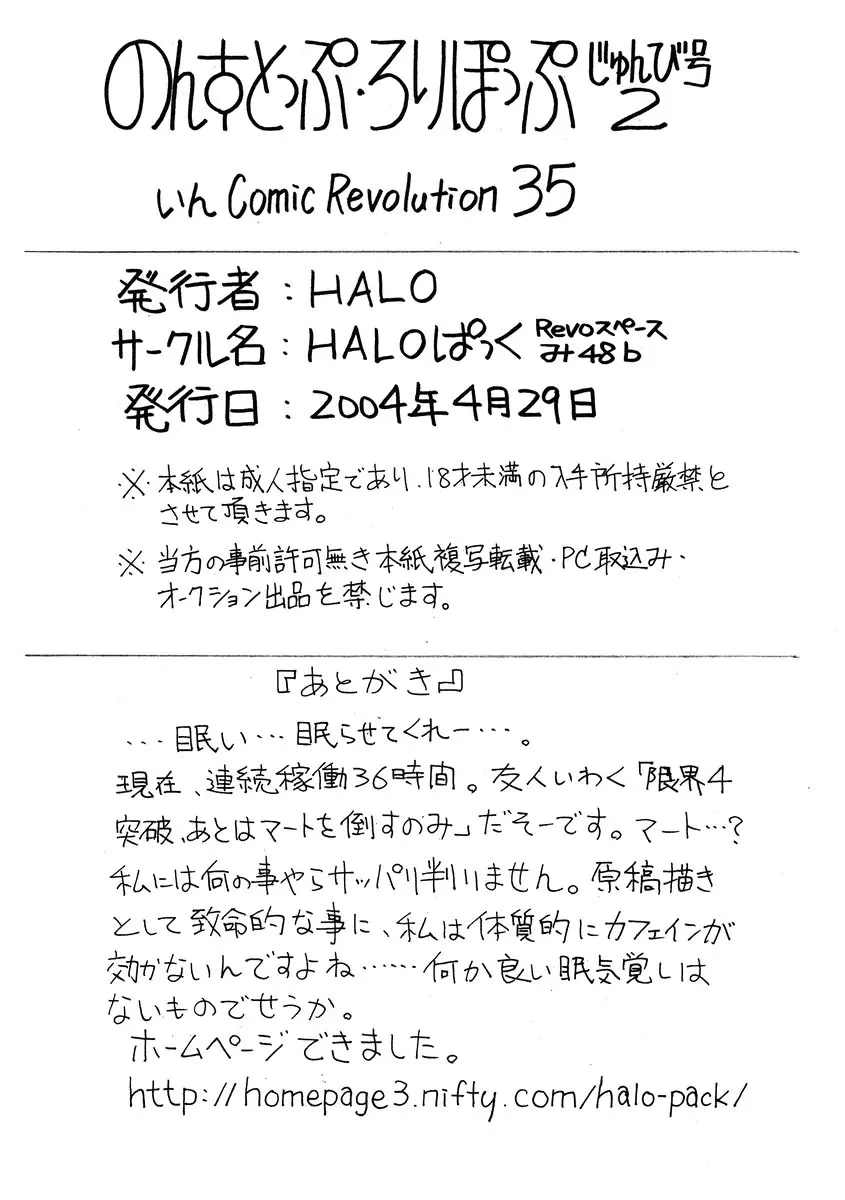 のんすとっぷ・ろりぽっぷ じゅんび号2
いん Comic Revolution 35
発行者：HALO
サークル名：HALOぱっく Revoスペース
み48b
発行日：2004年4月29日
※本紙は成人指定であり、18才未満の入手所持厳禁と
させて頂きます。
※当方の事前許可無き本紙複写転載・PC取込み・
オークション出品を禁じます。
『あとがき』
…眠い…眠らせてくれー…。
現在、連続稼働36時間。友人いわく「限界4
突破、あとはマートを倒すのみ」だそーです。マート…?
私には何の事やらサッパリ判りません。原稿描き
として致命的な事に、私は体質的にカフェインが
効かないんですよね……何か良い眠気覚しは
ないものでせうか。
ホームページできました。
http://homepage3.nifty.com/halo-pack/